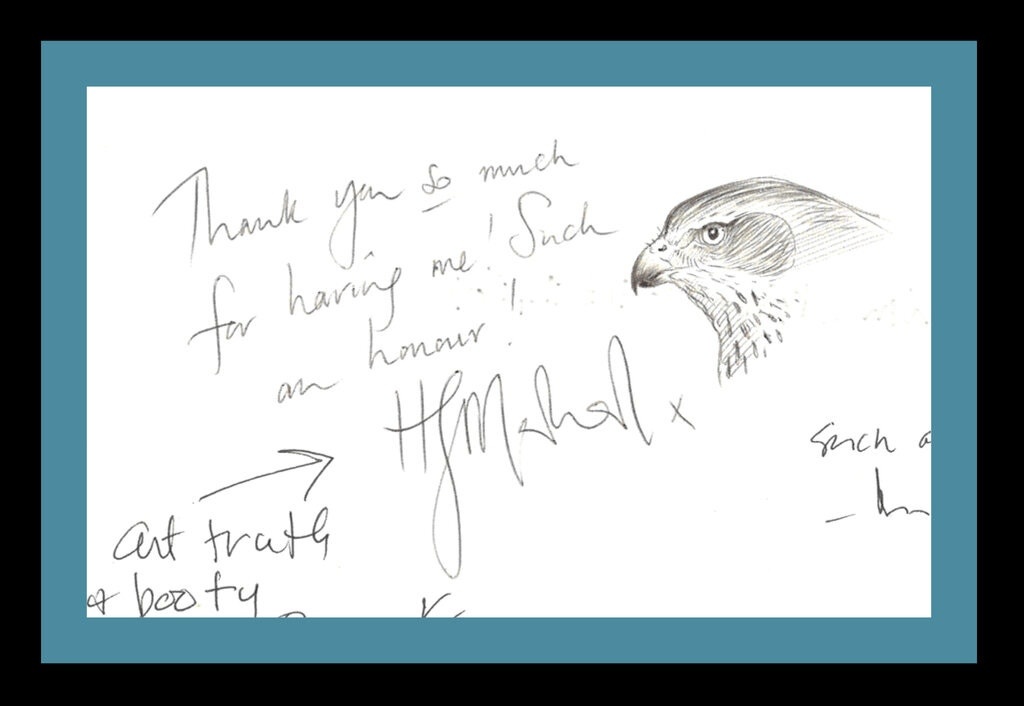 Thank you so much
for having me! Such
an honour!
x
such a
art truth
& booty